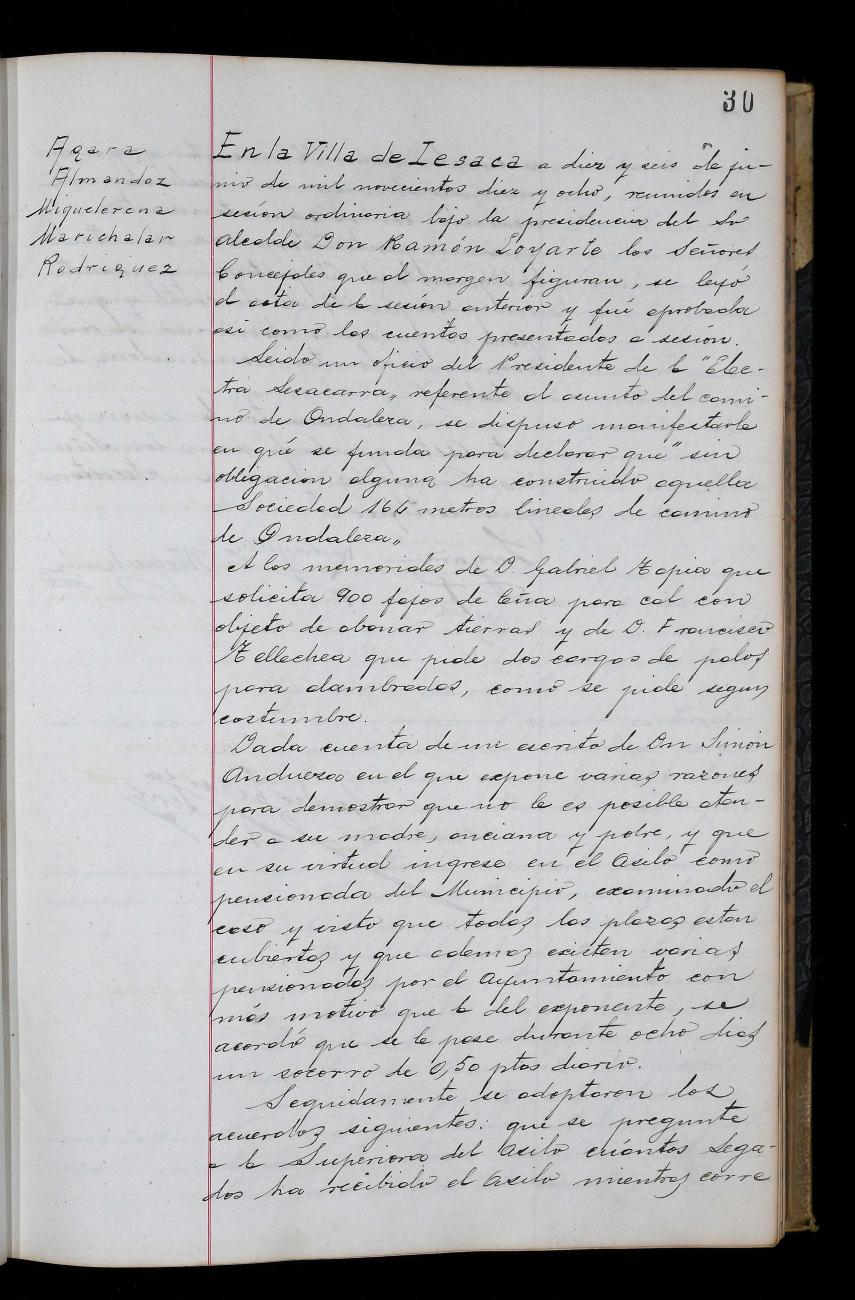 30
Agara
Almandoz
Miquelerena
Marichalar
Rodriguez
En la Villa de Lesaca a diez y seis de ju-
nio de mil novecientos diez y ocho, reunidos en
sesión ordinaria bajo la presidencia del Sr
Alcalde Don Ramón Loyarte los Señores
Concejales que al margen figuran, se leyó
el acta de la sesión anterior y fué aprobada
asi como las cuentas presentadas a sesión.
Leido un oficio del Presidente de la "Elec-
tra Lesacarra„ referente al asunto del cami-
no de Ondaleza, se dispuso manifestarle
en qué se funda para declarar que "sin
obligacion alguna ha construido aquella
Sociedad 164 metros lineales de camino
de Ondaleza„
A los memoriales de D. Gabriel Tapia que
solicita 900 fajos de leña para cal con
objeto de abonar tierras y de D. Francisco
Tellechea que pide dos cargas de palos
para alambrados, como se pide segun
costumbre.
Dada cuenta de un escrito de Dn Simón
Andueza en el que expone varias razones
para demostrar que no le es posible aten-
der a su madre, anciana y pobre, y que
en su virtud ingrese en el Asilo como
pensionada del Municipio, examinado el
caso y visto que todas las plazas estan
cubiertas y que ademas existen varias
pensionadas por el Ayuntamiento con
más motivo que la del exponente, se
acordó que se le pase durante ocho dias
un socorro de 0,50 ptas diario.
Seguidamente se adoptaron los
acuerdos siguientes: que se pregunte
a la Superiora del Asilo cuántos lega-
dos ha recibido el Asilo mientras corre